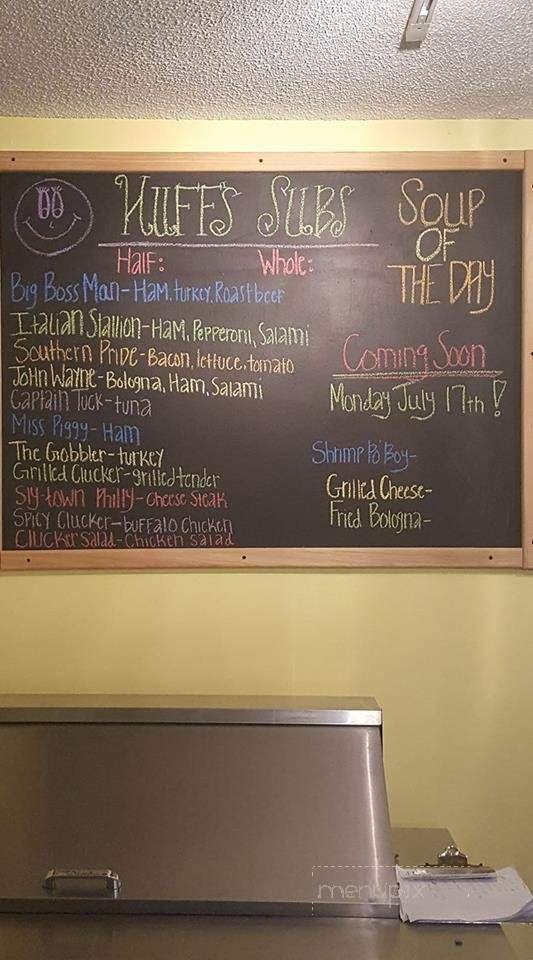 Huff's Subs
Half: Whole:
Big Boss Man- Ham, turkey, Roastbeef
Italian Stallion- Ham, Pepperoni, Salami
Southern Pride- Bacon, lettuce, tomato
John Wayne- Bologna, Ham, Salami
Captain Tuck- tuna
Miss Piggy- Ham
The Gobbler- turkey
Grilled Clucker- grilled tender
Sly town Philly- cheese steak
Spicy Clucker- buffalo chicken
Clucker Salad- Chicken salad
Soup
of
The Day
Coming Soon
Monday July 17th!
Shrimp Po' Boy-
Grilled Cheese-
Fried Bologna-
menupix